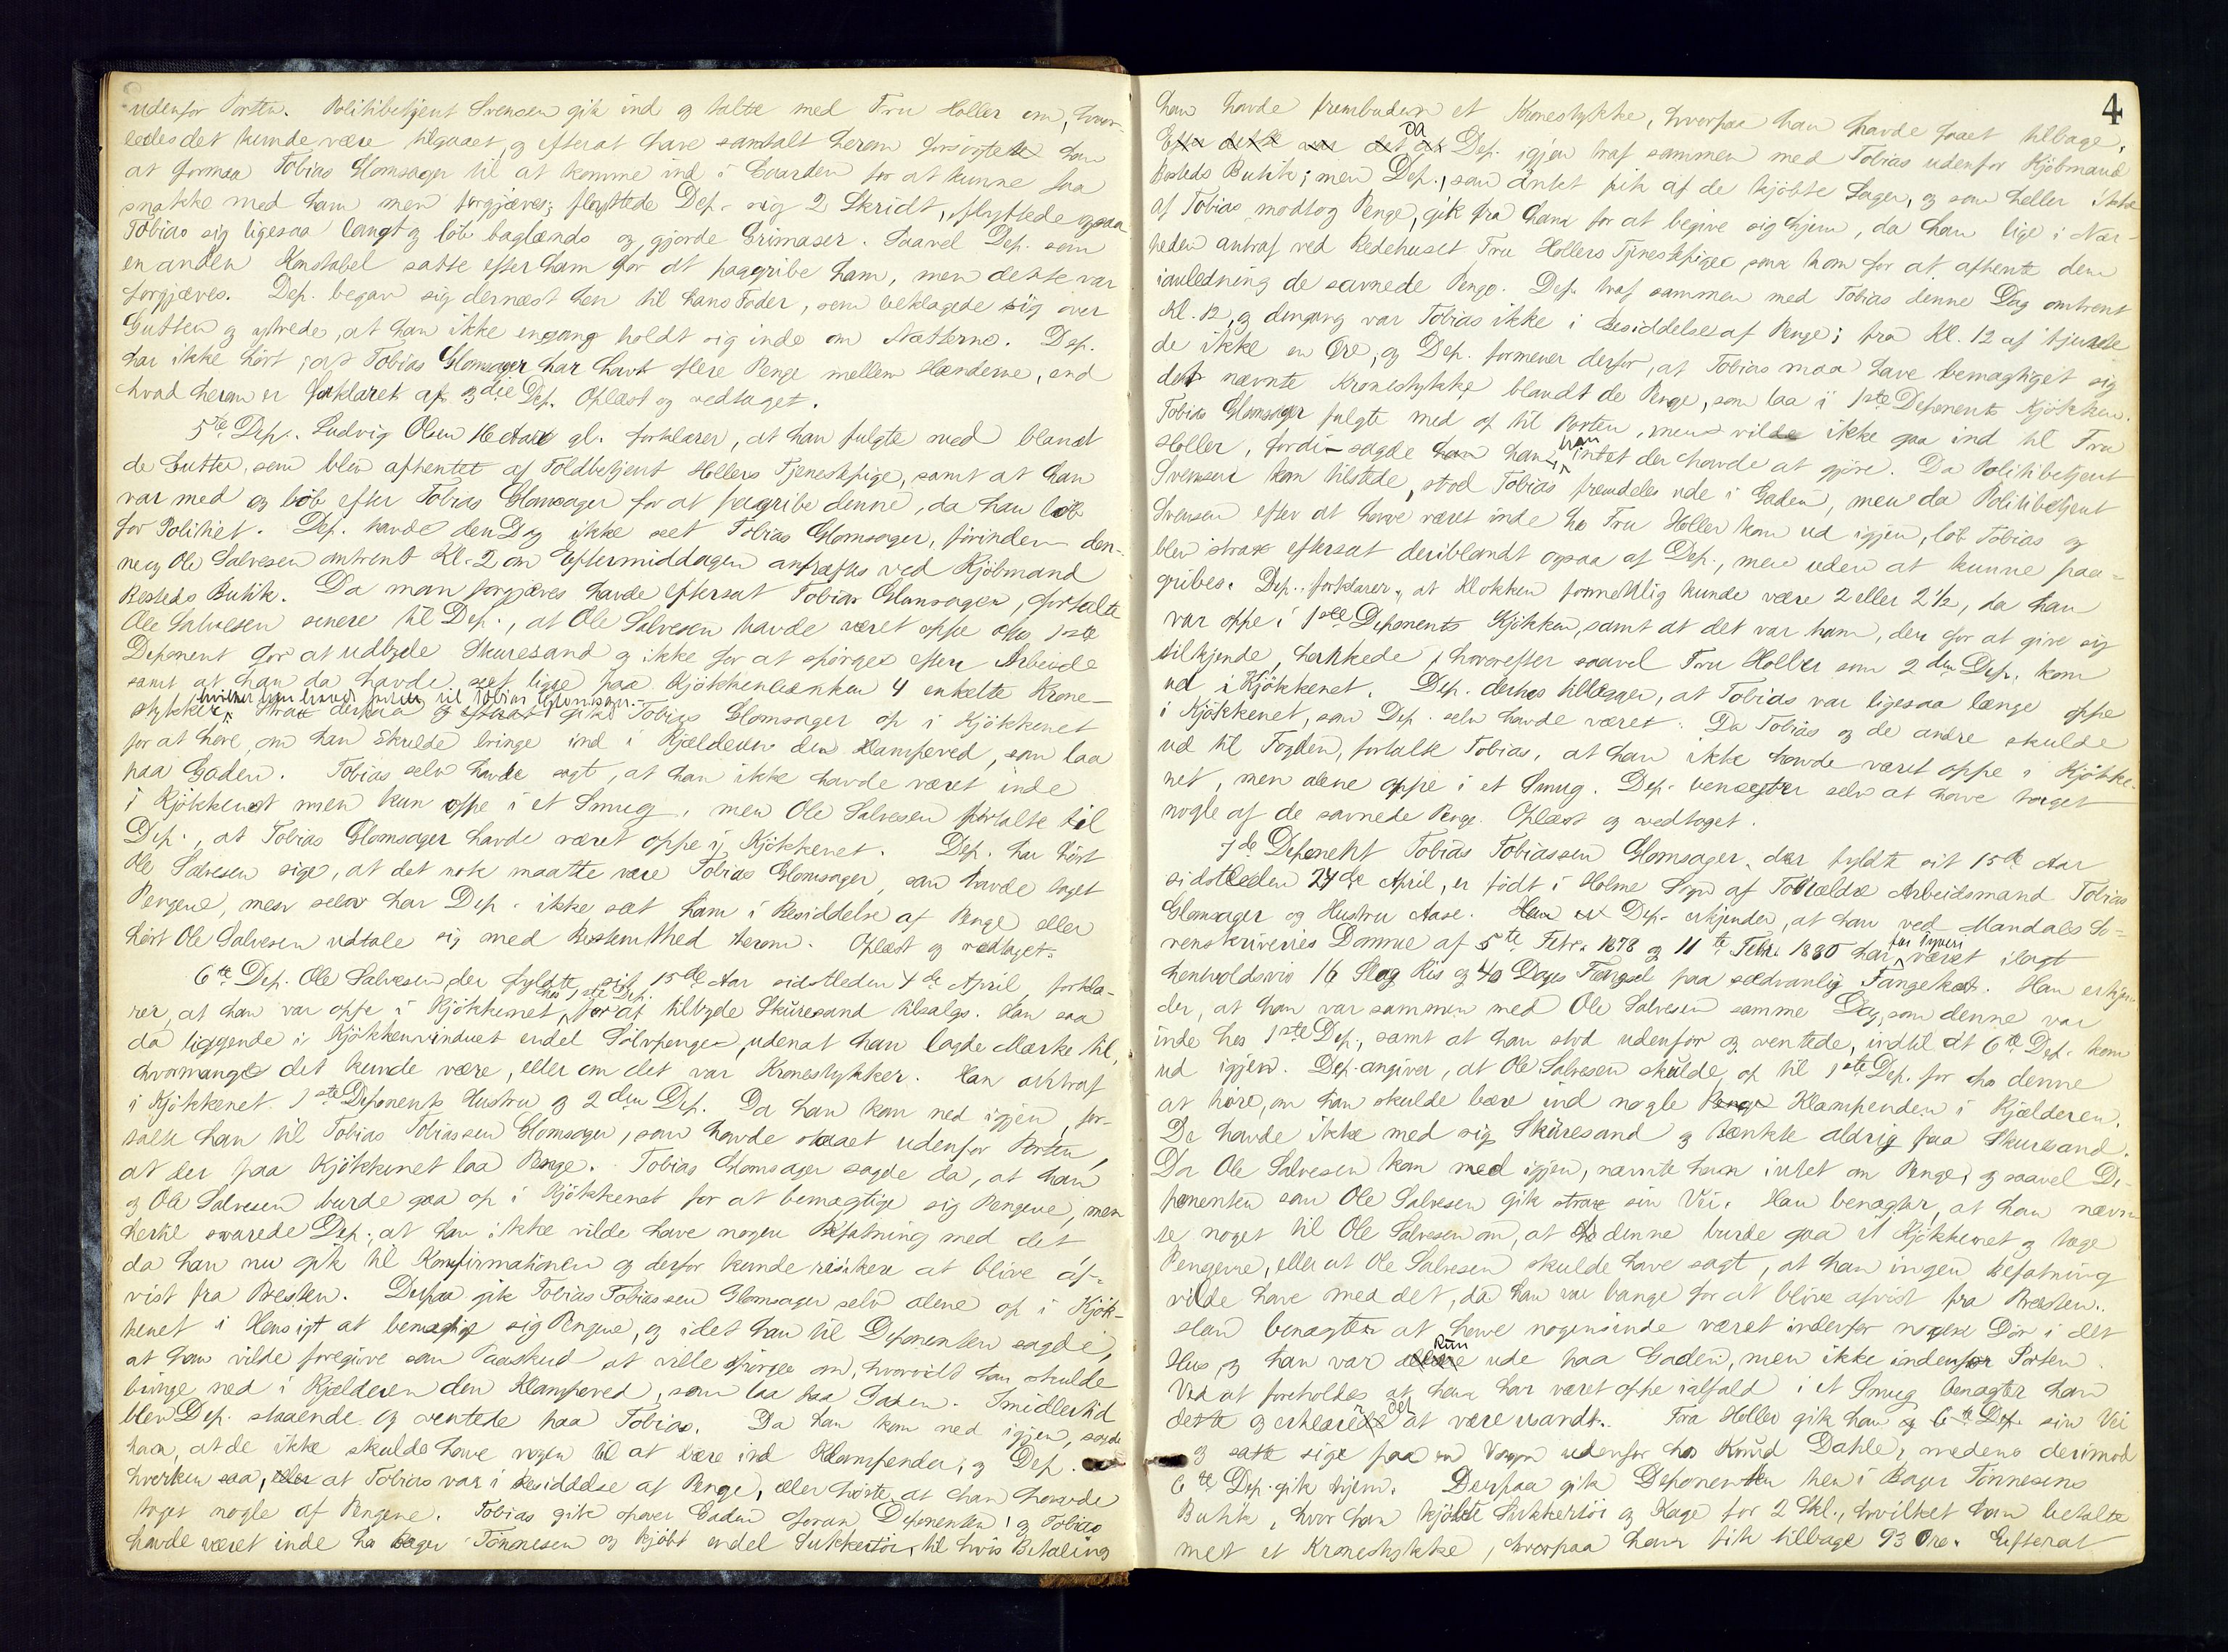 udenfor Porten. Politibetjent Svensen gik ind og talte med Fru Holler om, hvor-
ledes det kunde være tilgaaet, og efterat have samtalt herom forsøgte han
at formaa Tobias Glomsager til at komme ind i Gaarden for at kunne faa
snakke med ham men forgjæves; flyttede Dep. sig 2 Skridt, flyttede ogsaa
Tobias sig ligesaa langt og løb baglænds og gjorde Grimaser. Saavel Dep. som
en anden Konstabel satte efter ham for at paagribe ham, men dette var
forgjæves. Dep. begav sig dernæst hen til hans Fader, som beklagede sig over
Gutten og ytrede, at han ikke engang holdt sig inde om Nætterne. Dep.
har ikke hørt, at Tobias Glomsager har havt flere Penge mellem Hænderne, end
hvad herom er forklaret af 3die Dep. Oplæst og vedtaget.
5te Dep. Ludvig Olsen 16 Aar gl. forklarer, at han fulgte med blandt
de Gutter, som blev afhentet af Toldbetjent Hollers Tjenestepige, samt at han
var med og løb efter Tobias Glomsager for at paagribe denne, da han løb
for Politiet. Dep. havde den Dag ikke seet Tobias Glomsager, førinden den-
ne og Ole Salvesen omtrent Kl. 2 om Eftermiddagen antraftes ved Kjøbmand
Bosteds Butik. Da man forgjæves havde eftersat Tobias Glomsager, fortalte
Ole Salvesen senere til Dep., at Ole Salvesen havde været oppe hos 1ste
Deponent for at udbyde Skuresand og ikke for at spørge efter Arbeide
samt at han da havde seet ligge paa Kjøkkenbænken 4 enkelte Krone-
hvilket han havde fortalt til Tobias Glomsager.
stykker, Strax derpaa gik Tobias Glomsager op i Kjøkkenet
for at høre, om han skulde bringe ind i Kjælderen den Klampeved, som laa
paa Gaden. Tobias selv havde sagt, at han ikke havde været inde
i Kjøkkenet men kun oppe i et Smug, men Ole Salvesen fortalte til
Dep., at Tobias Glomsager havde været oppe i Kjøkkenet. Dep. har hørt
Ole Salvesen sige, at det nok maatte være Tobias Glomsager, som havde taget
Pengene, men selv har Dep. ikke seet ham i Besiddelse af Penge eller
hørt Ole Salvesen udtale sig med Bestemthed herom. Oplæst og vedtaget.
6te Dep. Ole Salvesen, der fyldte sit 15de Aar sidstleden 4de April, forkla-
hos 1ste Dep.
rer, at han var oppe i Kjøkkenet, for at tilbyde Skuresand tilsalgs. Han saa
da liggende i Kjøkkenvinduet endel Sølvpenge, udenat han lagde Mærke til,
hvormange det kunde være, eller om det var Kronestykker. Han antraf
i Kjøkkenet 1ste Deponents Hustru og 2den Dep. Da han kom ned igjen, for-
talte han til Tobias Tobiassen Glomsager, som havde staaet udenfor Porten,
at der paa Kjøkkenet laa Penge. Tobias Glomsager sagde da, at han
og Ole Salvesen burde gaa op i Kjøkkenet for at bemægtige sig Pengene, men
hertil svarede Dep., at han ikke vilde have nogen Befatning med det
da han nu gik til Konfirmationen og derfor kunde risikere at blive af-
vist fra Presten. Derpaa gik Tobias Tobiassen Glomsager selv alene op i Kjøk-
kenet i Hensigt at bemægtige sig Pengene, og idet han til Deponenten sagde,
at han vilde foregive som Paaskud at ville spørge om, hvorvidt han skulde
bringe ned i Kjælderen den Klampeved, som laa paa Gaden. Imidlertid
blev Dep. staaende og ventede paa Tobias. Da han kom ned igjen, sagde
han, at de ikke skulde have nogen til at bære ind Klampender, og Dep.
hverken saa, eller at Tobias var i Besiddelse af Penge, eller hørte at han havde
taget nogle af Pengene. Tobias gik opover Gaden foran Deponenten, og Tobias
havde været inde hos Bager Tønnesen og kjøbt endel Sukkertøi, til hvis Betaling
4
han havde frembuden et Kronestykke, hvorpaa han havde faaet tilbage.
da
Efter dette var det at Dep. igjen traf sammen med Tobias udenfor Kjøbmand
Bosteds Butik; men Dep., som intet fik af de kjøbte Sager, og som heller ikke
af Tobias modtog Penge, gik fra ham for at begive sig hjem, da han lige i Nær-
heden antraf ved Bedehuset Fru Hollers Tjenestepige som kom for at afhente dem
ianledning de savnede Penge. Dep. traf sammen med Tobias denne Dag omtrent
Kl. 12, og dengang var Tobias ikke i Besiddelse af Penge; fra Kl. 12 af
de ikke en Øre, og Dep. formener derfor, at Tobias maa have bemægtiget sig
det nævnte Kronestykke blandt de Penge, som laa i 1ste Deponents Kjøkken.
Tobias Glomsager fulgte med op til Porten, men vilde ikke gaa ind til Fru
han
Holler, fordi – sagde han – intet der havde at gjøre. Da Politibetjent
Svensen kom tilstede, stod Tobias fremdeles ude i Gaden, men da Politibetjent
Svensen efter at have været inde hos Fru Holler kom ud igjen, løb Tobias og
blev strax eftersat deriblandt ogsaa af Dep., men uden at kunne paa-
gribes. Dep. forklarer, at Klokken formentlig kunde være 2 eller 2½, da han
var oppe i 1ste Deponents Kjøkken, samt at det var ham, der for at give sig
tilkjende, harkede, hvorefter saavel Fru Holler som 2den Dep. kom
ud i Kjøkkenet. Dep. derhos tillægger, at Tobias var ligesaa længe oppe
i Kjøkkenet, som Dep. selv havde været. Da Tobias og de andre skulde
ud til Fogden, fortalte Tobias, at han ikke havde været oppe i Kjøkke-
net, men alene oppe i et Smug. Dep. benægter selv at have taget
nogle af de savnede Penge. Oplæst og vedtaget.
7de Deponent Tobias Tobiassen Glomsager, der fyldte sit 15de Aar
sidstleden 27de April, er født i Holme Sogn af Forældre Arbeidsmand Tobias
Glomsager og Hustru Aase. Dep. erkjender, at han ved Mandals So-
for Tyveri
renskriveries Domme af 5te Febr. 1878 og 11te Febr. 1880 har været ilagt
henholdsvis 16 Slag Ris og 40 Dages Fængsel paa sædvanlig Fangekost. Han erkjen-
der, at han var sammen med Ole Salvesen samme Dag, som denne var
inde hos 1ste Dep., samt at han stod udenfor og ventede, indtil at 6te Dep. kom
ud igjen. Dep. angiver, at Ole Salvesen skulde op til 1ste Dep. for hos denne
at høre, om han skulde bære ind nogle Penge Klampender i Kjælderen.
De havde ikke med sig Skuresand og tænkte aldrig paa Skuresand.
Da Ole Salvesen kom ned igjen, nævnte han intet om Penge, og saavel De-
ponenten som Ole Salvesen gik strax sin Vei. Han benægter, at han nævn-
te noget til Ole Salvesen om, at denne burde gaa i Kjøkkenet og tage
Pengene, eller at Ole Salvesen skulde have sagt, at han ingen Befatning
vilde have med det, da han var bange for at blive afvist fra Præsten.
Han benægter at have nogensinde været indenfor nogen Dør i det
kun
Hus, og han var alene ude paa Gaden, men ikke indenfor Porten.
Ved at foreholdes at han har været oppe ialfald i et Smug benægter han
det
dette og erklærer at være usandt. Fra Holler gik han og 6te Dep. sin Vei
og satte sig paa en Vogn udenfor hos Knud Dahle, medens derimod
6te Dep. gik hjem. Derpaa gik Deponenten hen i Bager Tønnesens
Butik, hvor han kjøbte Sukkertøi og Kage for 2 Skl., hvilket han betalte
met et Kronestykke, hvorpaa han fik tilbage 93 Øre. Efterat